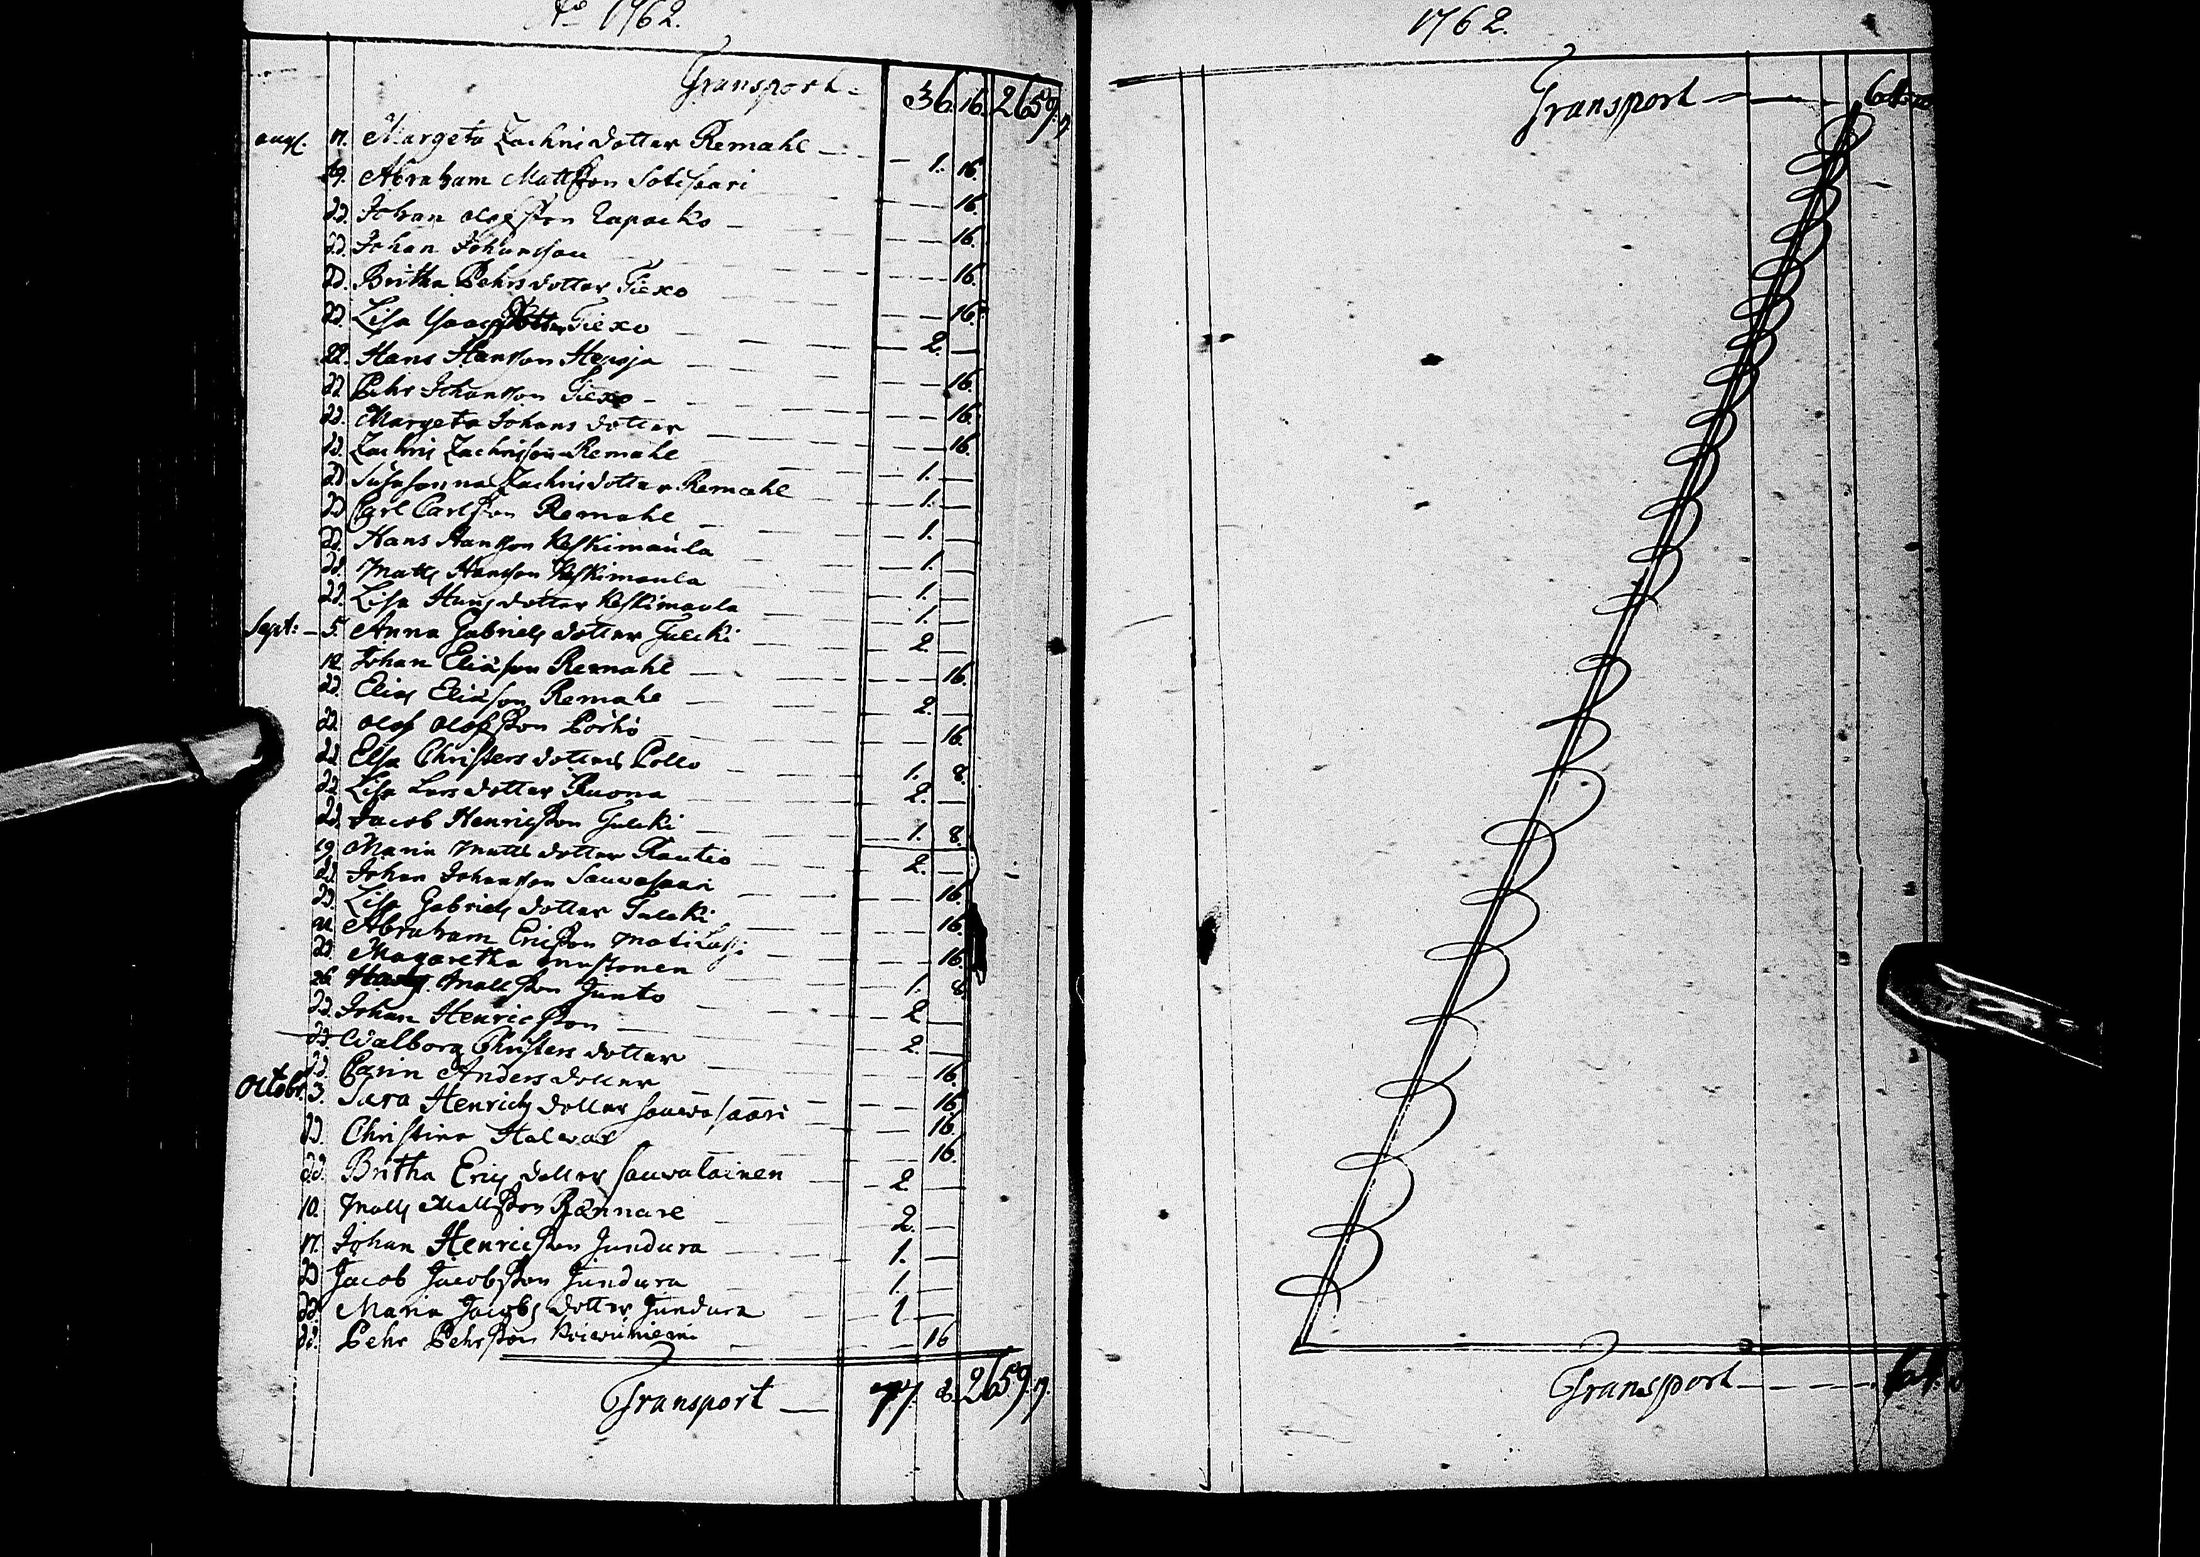 A:o 1762.
Transport 36. 16. 2659. 7.
aug. 17. Margeta Zachris dotter Remahl 1. 16.
Abraham Mattsson Sotisaari 16.
dd. Johan Olofsson Lapacko 16.
dd. Johan Johansson 16.
dd. Britha Pehrs dotter Tiexo 16.
dd. Lisa dotter Tiexo 2.
22. Hans Hansson 16.
dd. Pehr Johansson Tiexo 16.
dd. Margeta Johans dotter 16.
dd. Zachris Zachrisson Remahl 1.
dd. Zachris dotter Remahl 1.
dd. Carl Carlsson Remahl 1.
dd. Hans Hansson Keskimaula 1.
dd. Matts Hansson Keskimaula 1.
dd. Lisa Hans dotter Keskimaula 1.
Sept: 5. Anna Gabriels dotter Tulcki 2
12. Johan Eliasson Remahl 16.
dd. Elias Eliasson Remahl 2.
dd. Olof Olofsson 16.
dd. Elsa Christers dotter Pello 1. 8.
dd. Lisa Lars dotter Ruona 2.
dd. Jacob Henricsson Tulcki 1. 8.
19. Maria Matts dotter Rautio 2.
dd. Johan Johansson Sauwasaari 16.
dd. Lisa Gabriels dotter Tulcki 16.
Abraham Ericsson 16.
dd. Magaretha 1. 8.
26. Mattsson Junto 2
dd. Johan Henricsson 2.
dd. Walborg Christers dotter 16.
dd. Carin Anders dotter 16.
Octobr. 3. Sara Henrichs dotter Sauwasaari 16.
dd. Christina Halwar 16.
dd. Britha Erics dotter Sauwalainen 2.
10. Matts Mattsson Rännare 2.
17. Johan Henricsson Jundura 1.
dd. Jacob Jacobsson Jundura 1.
dd. Maria Jacobs dotter Jundura 1
dd. Pehr Pehrsson 16
Transport 77. 8. 2659. 7.
1762.
Transport
Transport